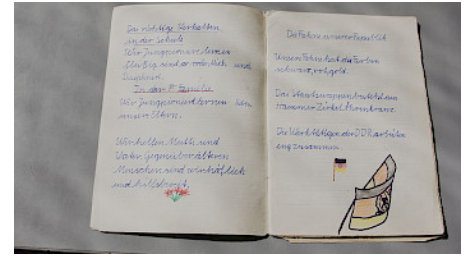 Das richtige Verhalten
in der Schule
Wir Jungpioniere lernen
fleißig, sind ordentlich und
In der Familie
Wir Jungpioniere
unsere Eltern.
Wir helfen Mutti und
Vater. Gegenüber älteren
Menschen sind wir höflich
und hilfsbereit.
Die Fahne unserer Republik
Unsere Fahne hat die Farben
schwarz, rot, gold.
Das Staatswappen besteht aus
Hammer Zirkel Ährenkranz.
Die Werktätigen der DDR arbeiten
eng zusammen.